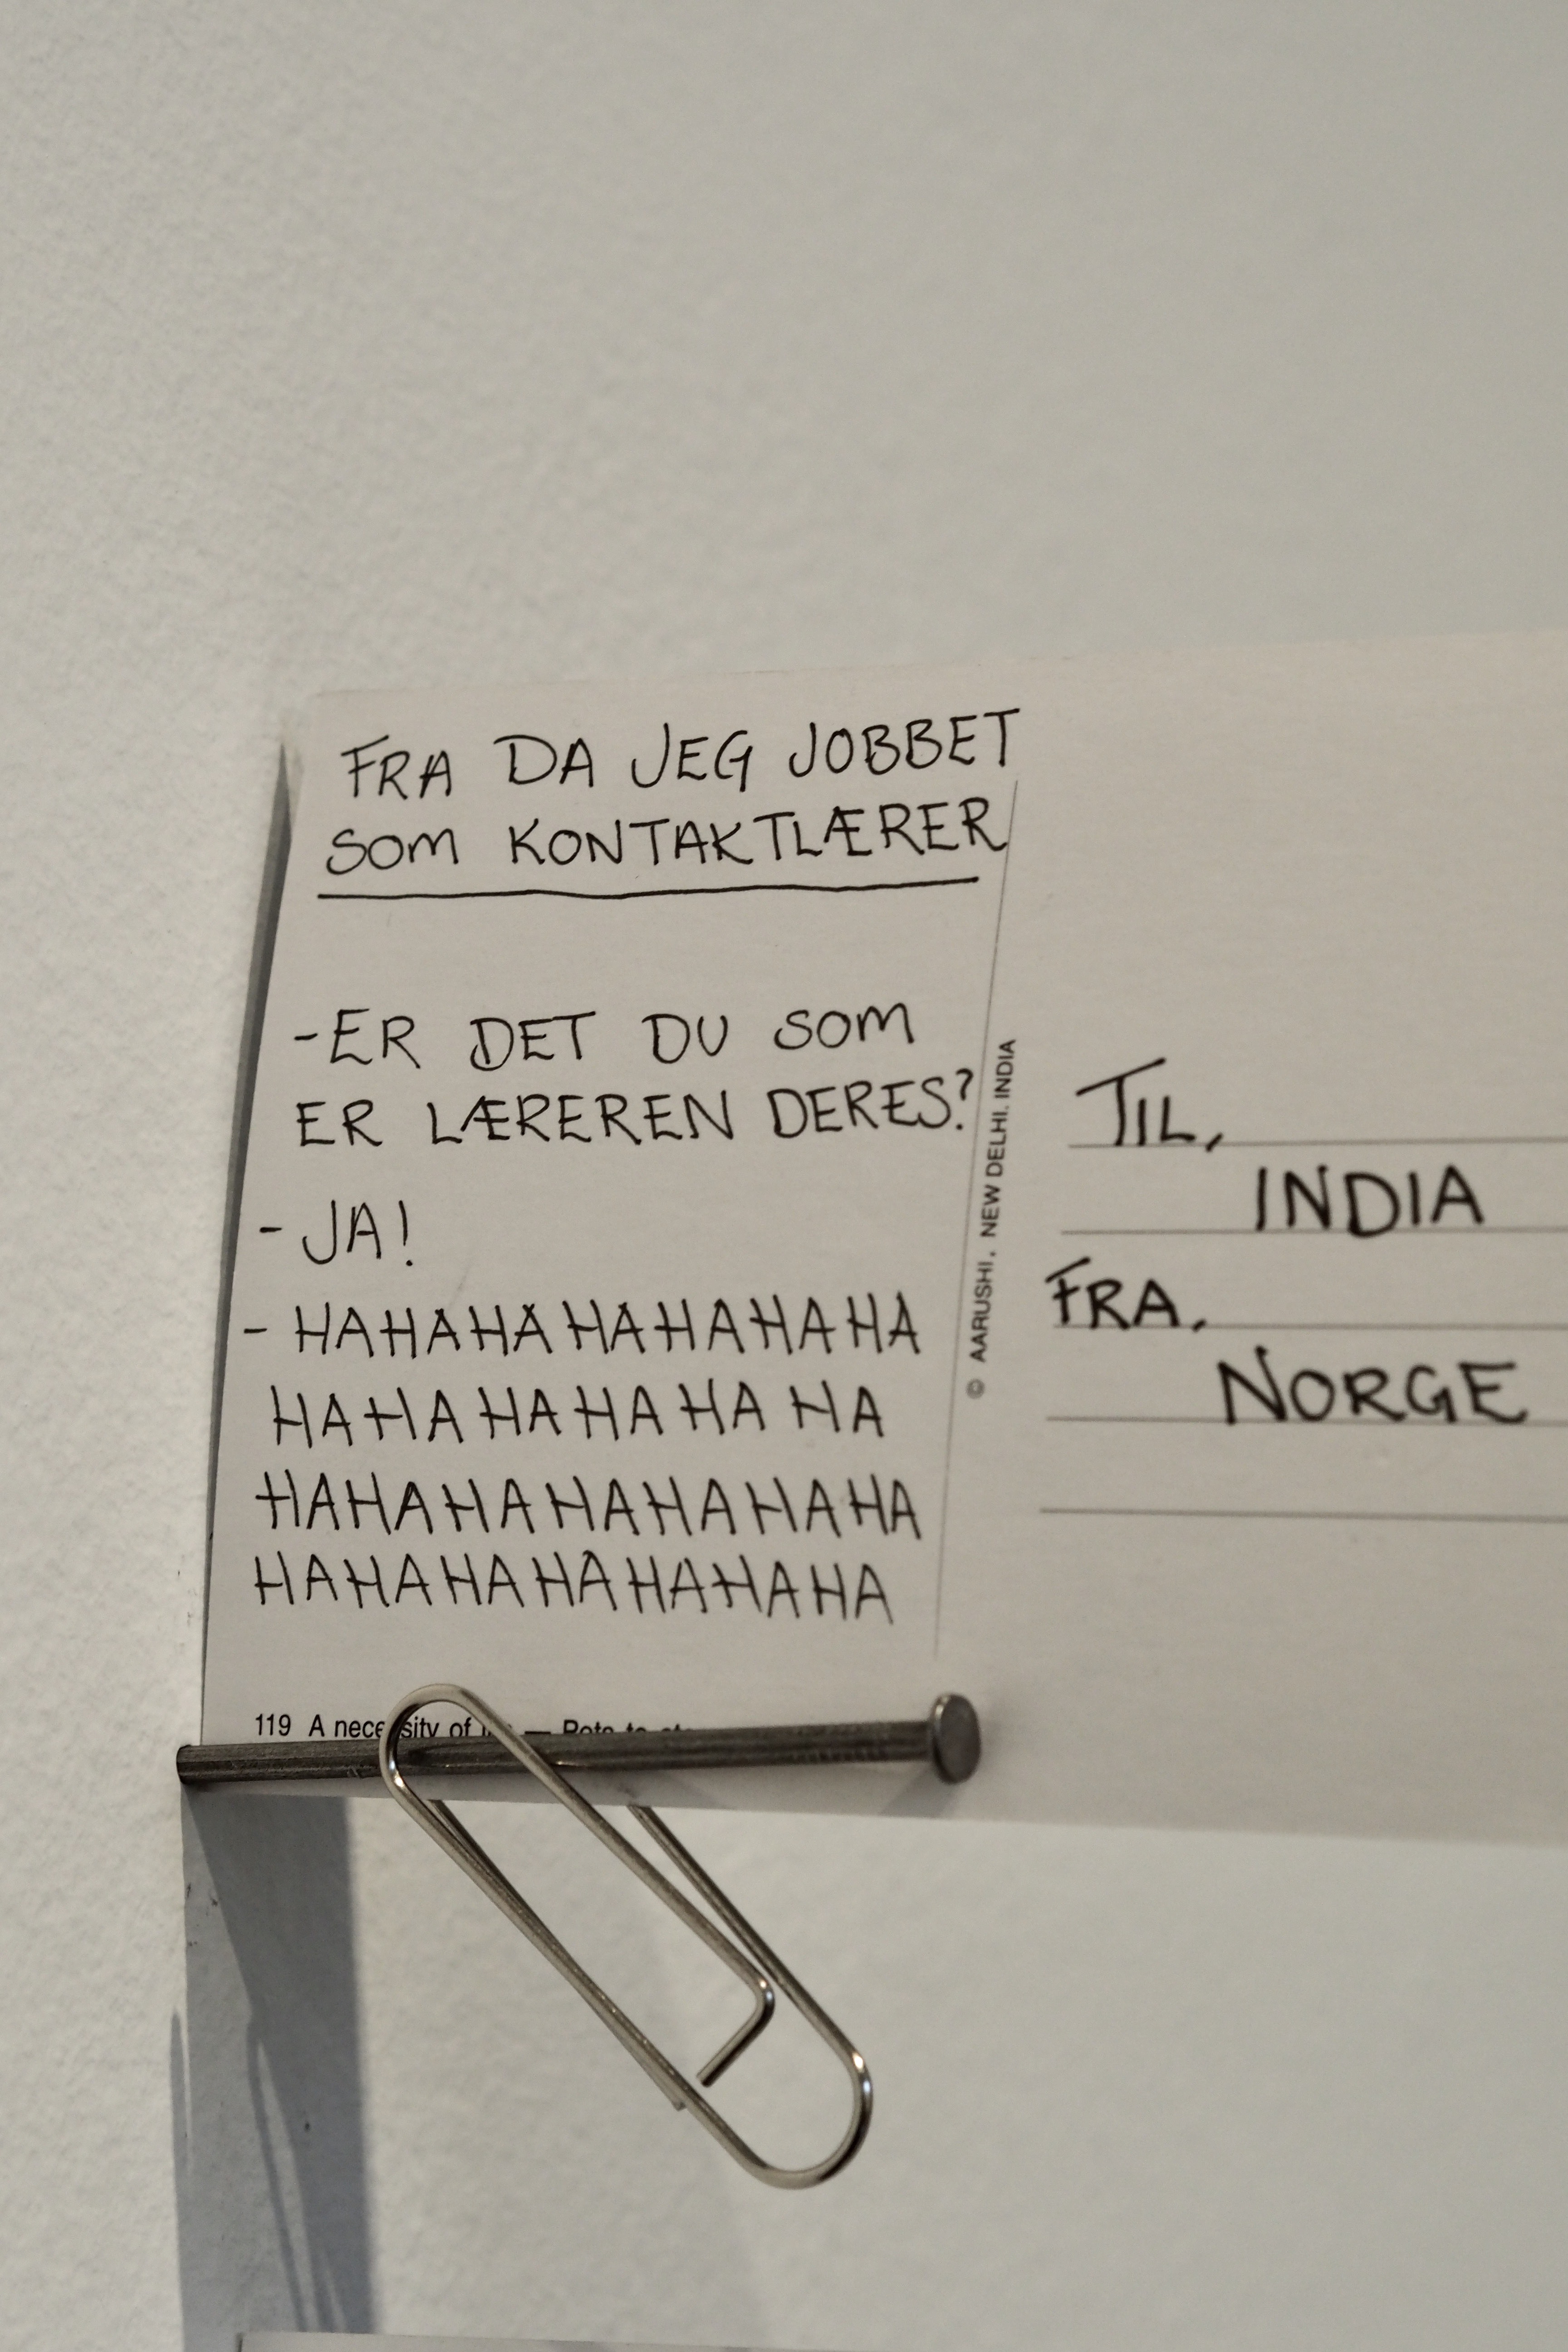 FRA DA JEG JOBBET
SOM KONTAKTLÆRER
-ER DET DU SOM
ER LÆREREN DERES?
- JA!
- HAHAHAHAHAHAHA
HAHAHAHAHAHA
HAHAHAHAHAHAHA
HAHAHAHAHAHAHA
119 A necessity of
© AARUSHI. NEW DELHI. INDIA
TIL,
INDIA
FRA,
NORGE